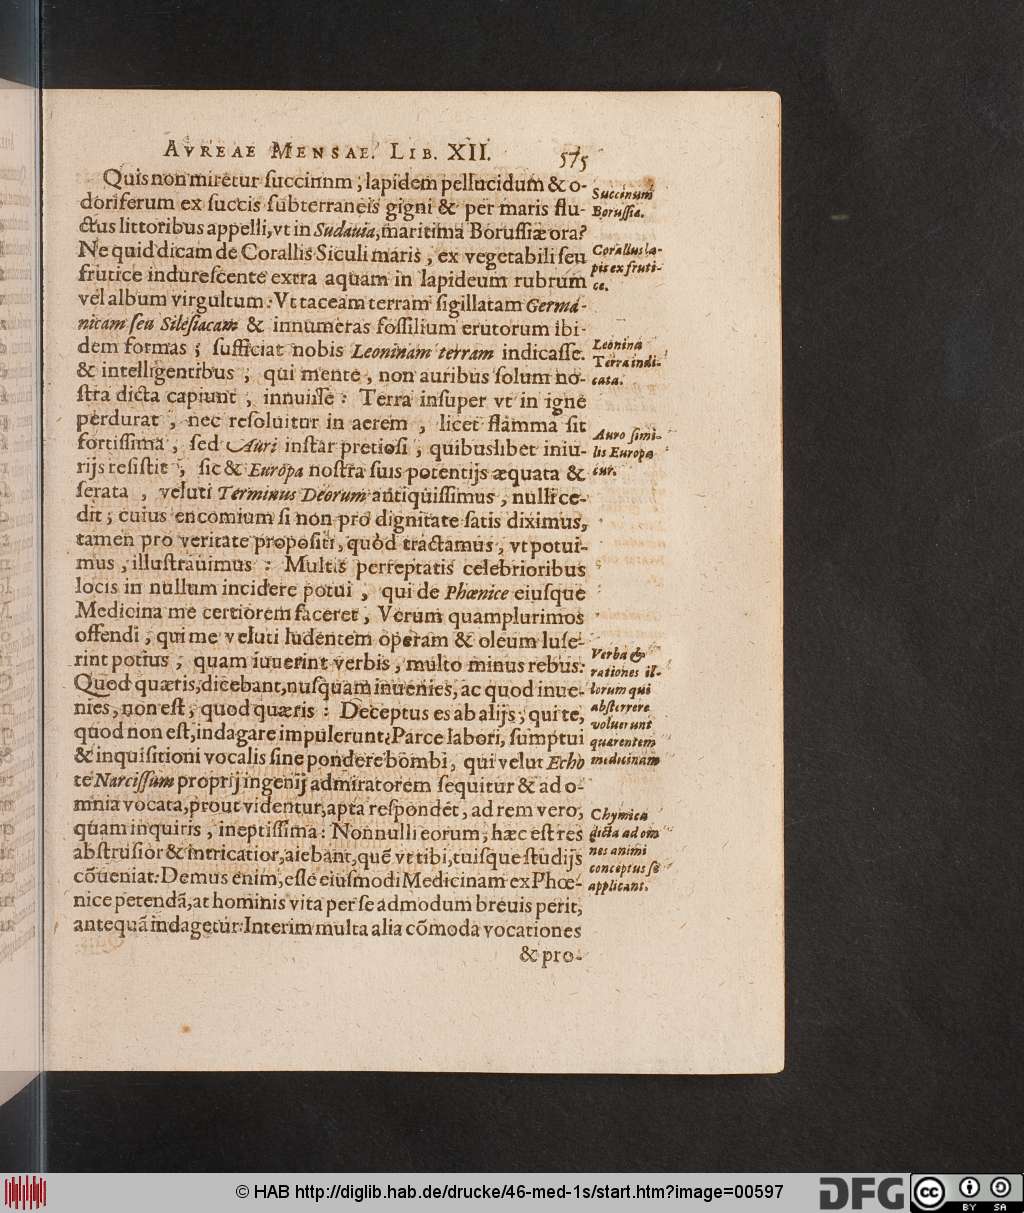 AVREAE MENSAE. LIB. XII. 575
Quis non mirẽtur succinnm, lapidem pellucidum & o-
doriferum ex succis subterraneis gigni & per maris flu-
ctus littoribus appelli, vt in Sudauia, maritima Borussiæ ora?
Ne quid dicam de Corallis Siculi maris, ex vegetabili seu
frutice indurescente extra aquam in lapideum rubrum
vel album virgultum: Vt taceam terram sigillatam Germa-
nicam seu Silesiacam & innumeras fossilium erutorum ibi-
dem formas; sufficiat nobis Leoninam terram indicasse.
& intelligentibus, qui mente, non auribus solum no-
stra dicta capiunt, innuisse: Terra insuper vt in igne
perdurat, nec resoluitur in aerem, licet flamma sit
fortissima, sed Auri instar pretiosi, quibuslibet iniu-
rijs resistit, sic & Europa nostra suis potentijs æquata &
serata, veluti Terminus Deorum antiquissimus, nulli ce-
dit; cuius encomium si non pro dignitate satis diximus,
tamen pro veritate propositi, quod tractamus, vt potui-
mus, illustrauimus: Multis perreptatis celebrioribus
locis in nullum incidere potui, qui de Phœnice eiusque
Medicina me certiorem faceret, Verum quamplurimos
offendi, qui me veluti ludentem operam & oleum luse-
rint potius, quam iuuerint verbis, multo minus rebus:
Quod quæris, dicebant, nusquam inuenies, ac quod inue-
nies, non est, quod quæris: Deceptus es ab alijs, qui te,
quod non est, indagare impulerunt: Parce labori, sumptui
& inquisitioni vocalis sine pondere bombi, qui velut Echo
te Narcissum proprij ingenij admiratorem sequitur & ad o-
mnia vocata, prout videntur, apta respondet, ad rem vero,
quam inquiris, ineptissima: Nonnulli eorum, hæc est res
abstrusior & intricatior, aiebant, quẽ vt tibi, tuisque studijs
cõueniat: Demus enim, esse eiusmodi Medicinam ex Phœ-
nice petendã, at hominis vita per se admodum breuis perit,
antequã indagetur: Interim multa alia cõmoda vocationes
& pro-
Succinum
Borussiæ.
Corallus la-
pis ex fruti-
ce.
Leonina
Terra indi-
cata.
Auro simi-
lis Europa
cur.
Verba &
rationes il-
lorum qui
absterrere
voluerunt
quærentem
medicinam
Chymica
dicta ad om
nes animi
conceptus se
applicant.
© HAB http://diglib.hab.de/drucke/46-med-1s/start.htm?image=00597
DFG
cc
BY SA